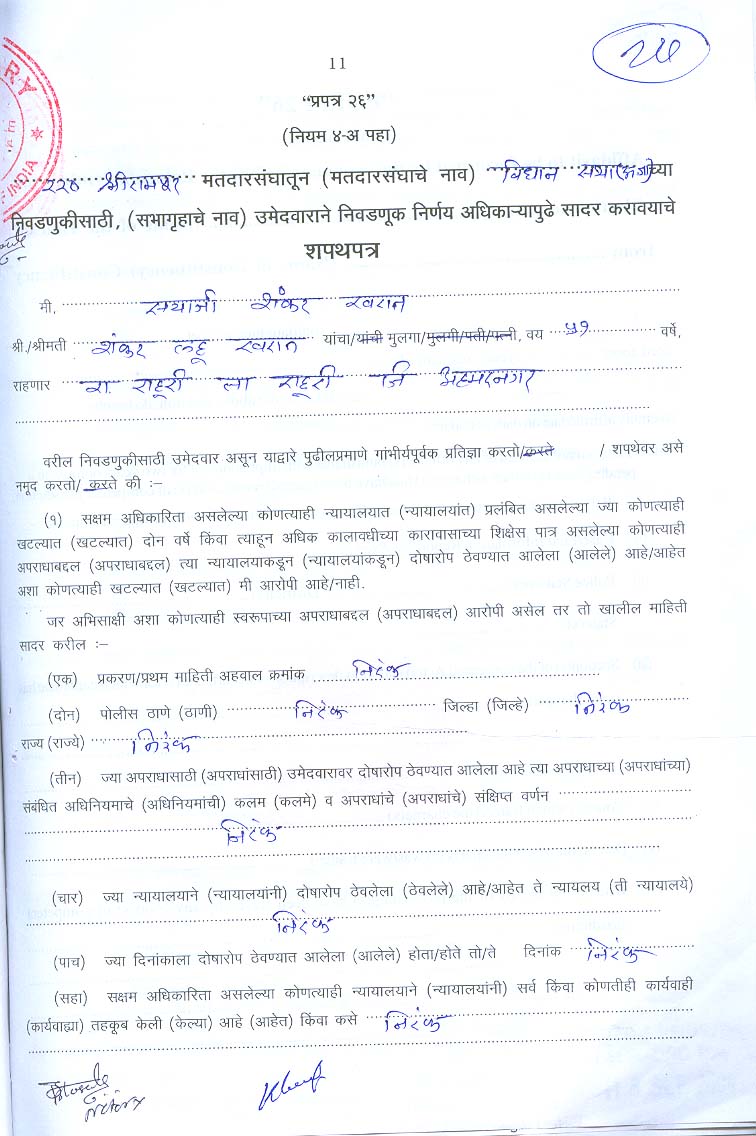 11
२४
"प्रपत्र २६"
(नियम ४-अ पहा)
२२० श्रीरामपूर मतदारसंघातून (मतदारसंघाचे नाव) विधान सभा (अ.जा) च्या
निवडणुकीसाठी, (सभागृहाचे नाव) उमेदवाराने निवडणूक निर्णय अधिकाऱ्यापुढे सादर करावयाचे
शपथपत्र
मी, सयाजी शंकर खरात
श्री./श्रीमती शंकर लहू खरात यांचा/यांची मुलगा/मुलगी/पती/पत्नी, वय ५१ वर्षे,
राहणार रा. राहूरी ता राहूरी जि अहमदनगर
वरील निवडणुकीसाठी उमेदवार असून याद्वारे पुढीलप्रमाणे गांभीर्यपूर्वक प्रतिज्ञा करतो/करते / शपथेवर असे
नमूद करतो/ करते की :–
(१) सक्षम अधिकारिता असलेल्या कोणत्याही न्यायालयात (न्यायालयांत) प्रलंबित असलेल्या ज्या कोणत्याही
खटल्यात (खटल्यात) दोन वर्षे किंवा त्याहून अधिक कालावधीच्या कारावासाच्या शिक्षेस पात्र असलेल्या कोणत्याही
अपराधाबद्दल (अपराधाबद्दल) त्या न्यायालयाकडून (न्यायालयांकडून) दोषारोप ठेवण्यात आलेला (आलेले) आहे/आहेत
अशा कोणत्याही खटल्यात (खटल्यात) मी आरोपी आहे/नाही.
जर अभिसाक्षी अशा कोणत्याही स्वरूपाच्या अपराधाबद्दल (अपराधाबद्दल) आरोपी असेल तर तो खालील माहिती
सादर करील :–
(एक) प्रकरण/प्रथम माहिती अहवाल क्रमांक निरंक
(दोन) पोलीस ठाणे (ठाणी) निरंक जिल्हा (जिल्हे) निरंक
राज्य (राज्ये) निरंक
(तीन) ज्या अपराधासाठी (अपराधांसाठी) उमेदवारावर दोषारोप ठेवण्यात आलेला आहे त्या अपराधाच्या (अपराधांच्या)
संबंधित अधिनियमाचे (अधिनियमांची) कलम (कलमे) व अपराधांचे (अपराधांचे) संक्षिप्त वर्णन
निरंक
(चार) ज्या न्यायालयाने (न्यायालयांनी) दोषारोप ठेवलेला (ठेवलेले) आहे/आहेत ते न्यायलय (ती न्यायालये)
निरंक
(पाच) ज्या दिनांकाला दोषारोप ठेवण्यात आलेला (आलेले) होता/होते तो/ते दिनांक निरंक
(सहा) सक्षम अधिकारिता असलेल्या कोणत्याही न्यायालयाने (न्यायालयांनी) सर्व किंवा कोणतीही कार्यवाही
(कार्यवाह्या) तहकूब केली (केल्या) आहे (आहेत) किंवा कसे निरंक